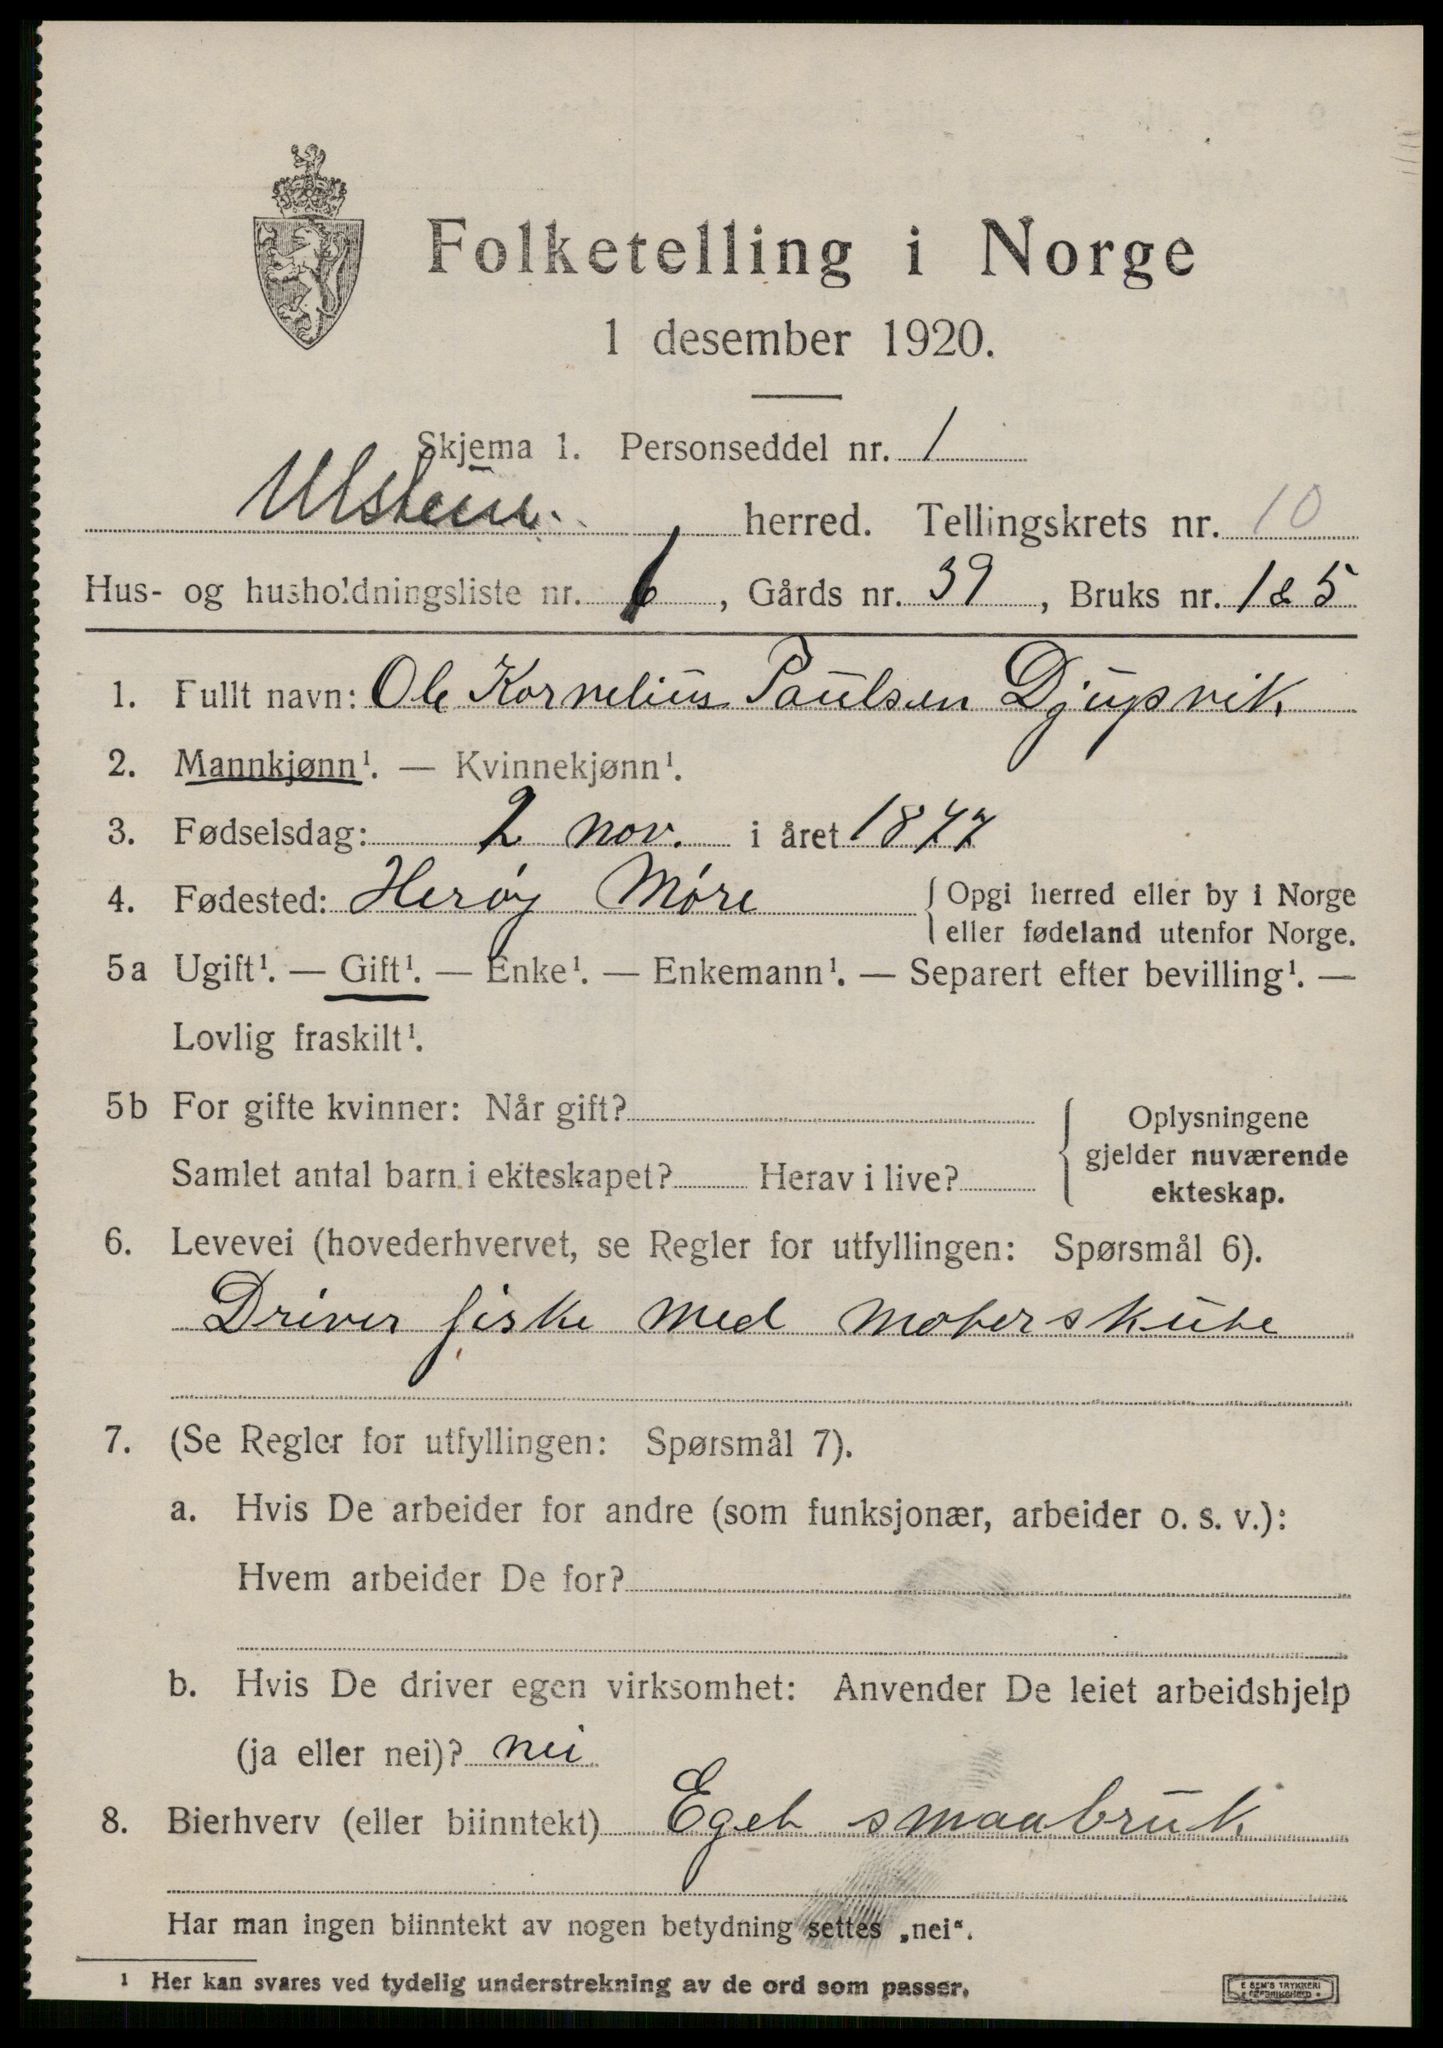 Folketelling i Norge
1 desember 1920.
Skjema 1. Personseddel nr. 1
Ulstein herred. Tellingskrets nr. 10
Hus- og husholdningsliste nr. 6, Gårds nr. 39, Bruks nr. 1 & 5
1. Fullt navn: Ole Kornelius Paulsen Djupvik
2. Mannkjønn¹. — Kvinnekjønn¹.
3. Fødselsdag: 2 nov. i året 1877
4. Fødested: Herøy Møre { Opgi herred eller by i Norge
eller fødeland utenfor Norge.
5a Ugift¹. — Gift¹. — Enke¹. — Enkemann¹. — Separert efter bevilling¹. —
Lovlig fraskilt¹.
5b For gifte kvinner: Når gift? { Oplysningene
gjelder nuværende
Samlet antal barn i ekteskapet? Herav i live? ekteskap.
6. Levevei (hovederhvervet, se Regler for utfyllingen: Spørsmål 6).
Driver fiske med moterskute
7. (Se Regler for utfyllingen: Spørsmål 7).
a. Hvis De arbeider for andre (som funksjonær, arbeider o. s. v.):
Hvem arbeider De for?
b. Hvis De driver egen virksomhet: Anvender De leiet arbeidshjelp
(ja eller nei)? nei
8. Bierhverv (eller biinntekt) Eget smaabruk
Har man ingen biinntekt av nogen betydning settes „nei“.
¹ Her kan svares ved tydelig understrekning av de ord som passer.